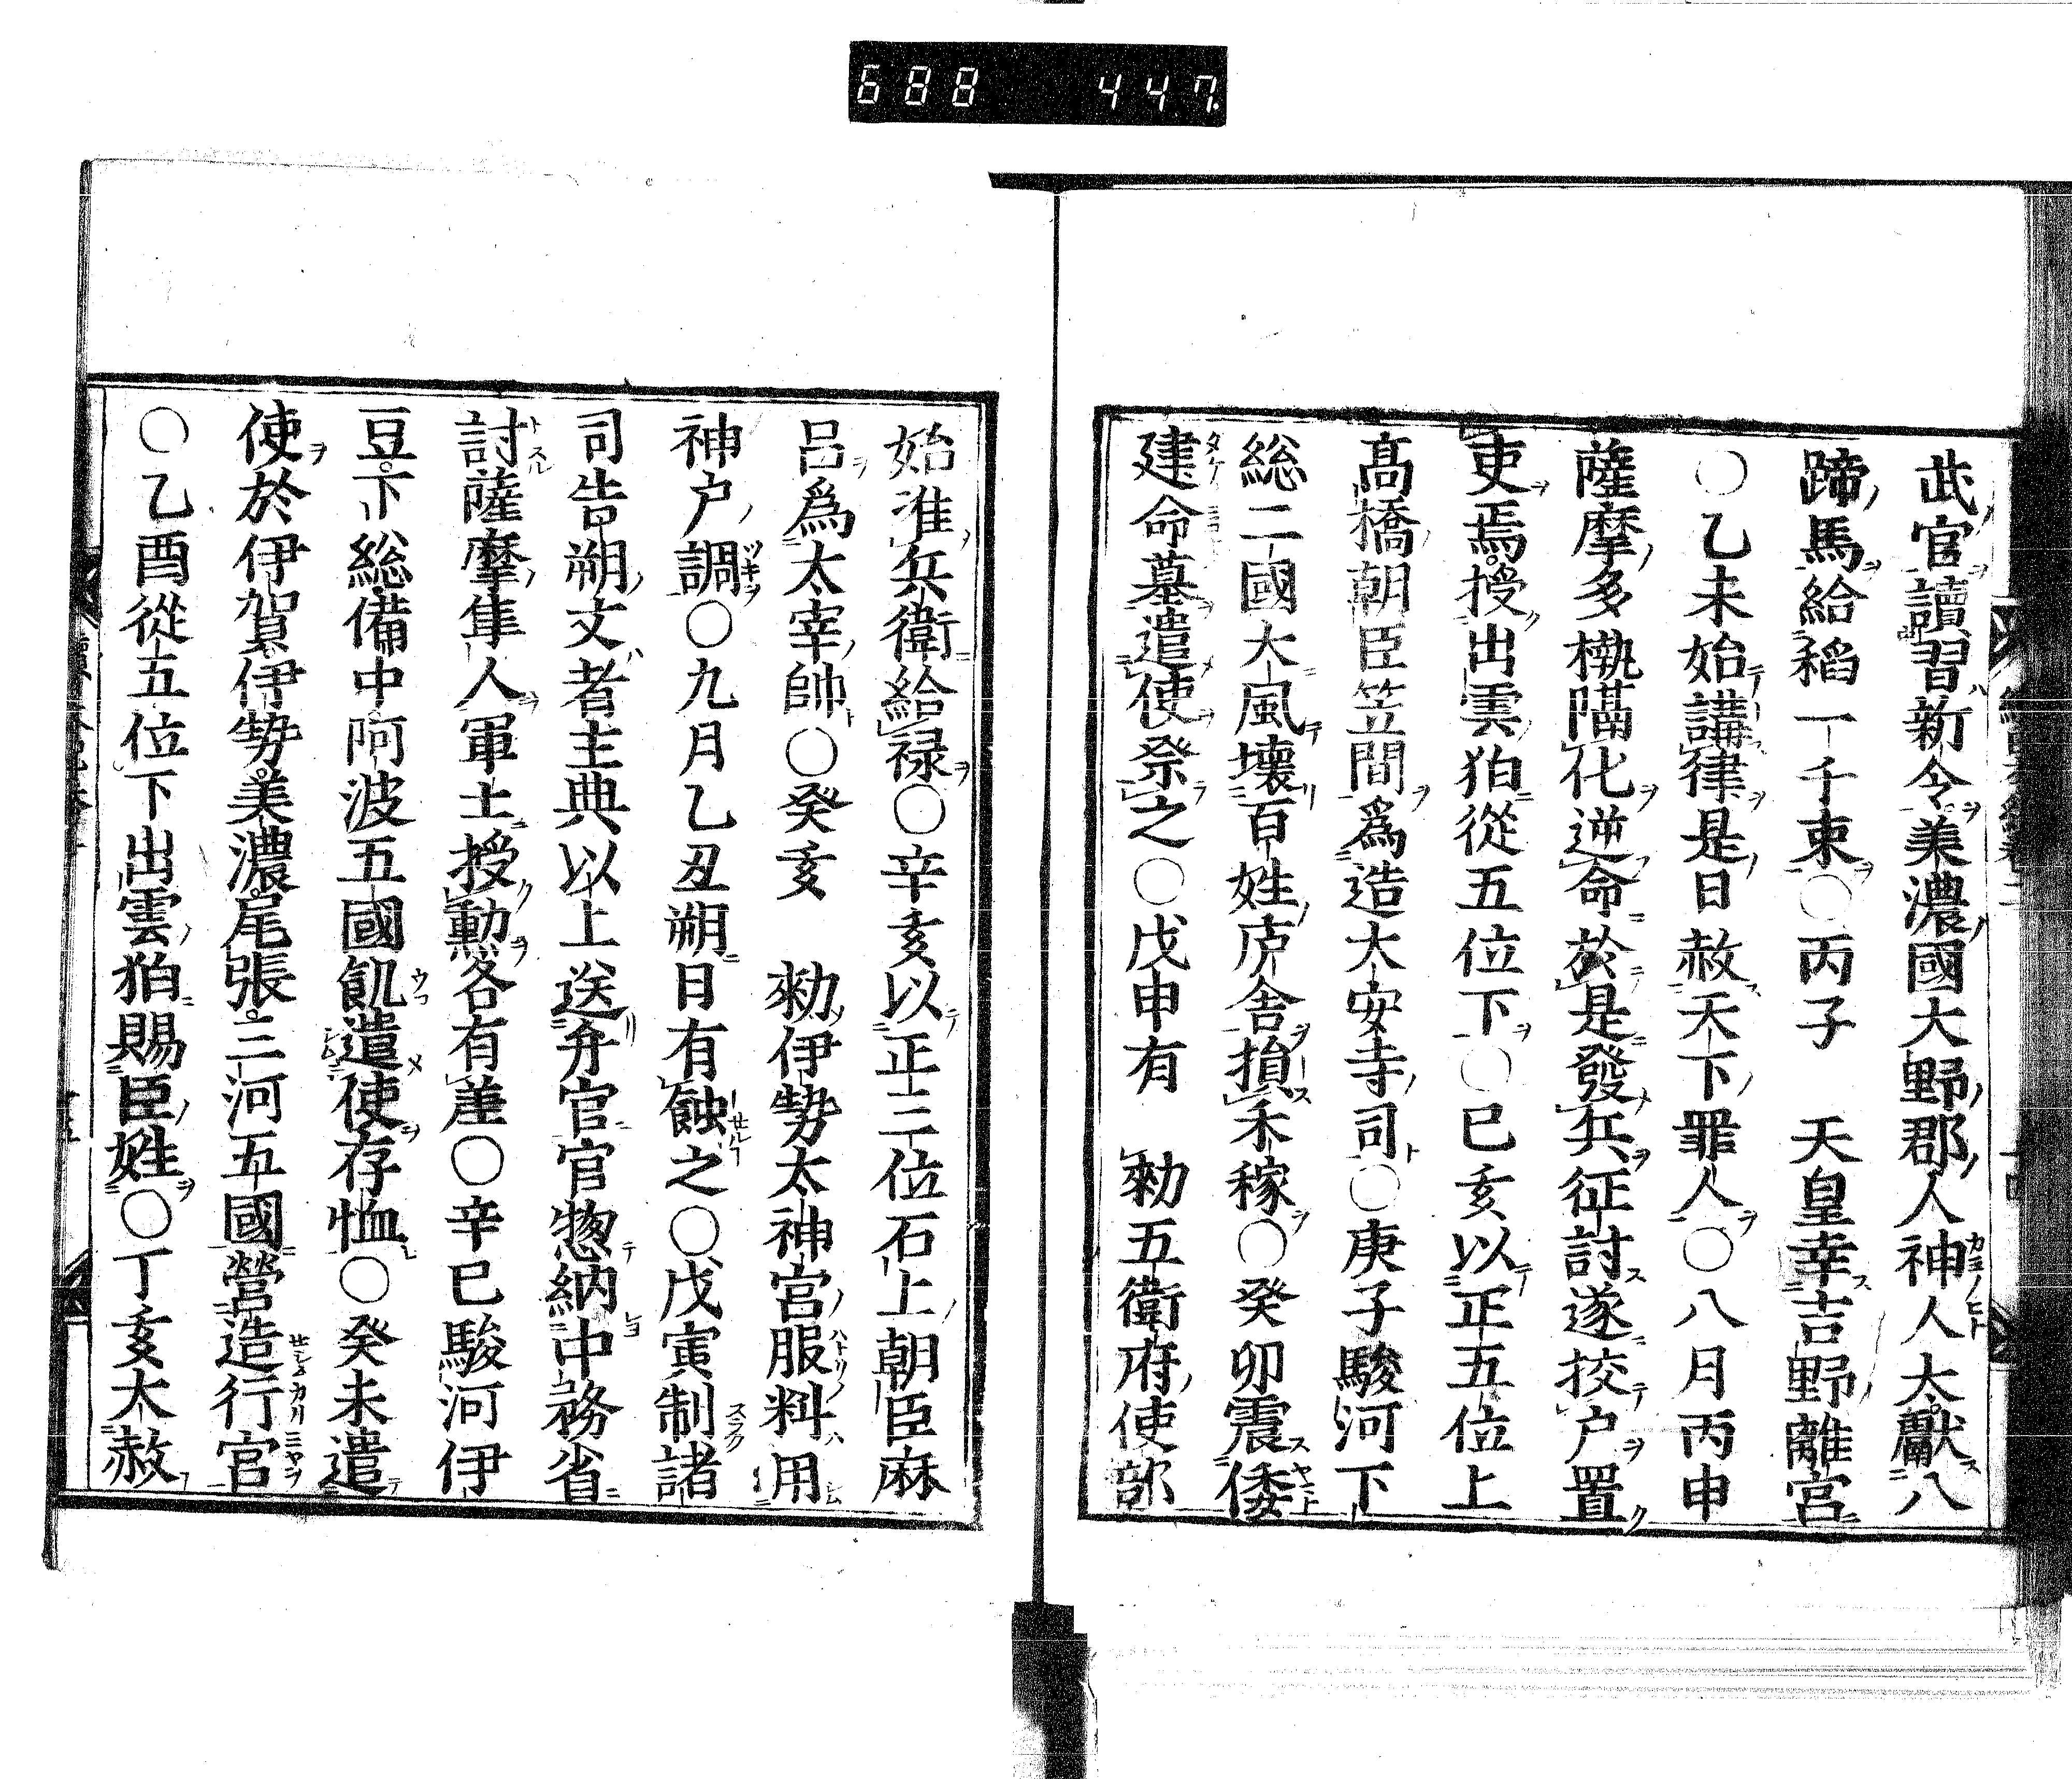 688 447
武官讀習新令美濃國大野郡人神人大獻八
蹄馬給稻一千束〇丙子 天皇幸吉野離宮
〇乙未始講律是日赦天下罪人〇八月丙申
薩摩多褹隔化逆命於是發兵征討遂挍户置
吏焉授出雲狛從五位下〇已亥以正五位上
髙橋朝臣笠間爲造大安寺司〇庚子駿河下
総二國大風壞百姓庐舎損禾稼〇癸卯震倭
建命墓遣使祭之〇戊申有 勑五衛府使部
始准兵衛給禄〇辛亥以正三位石上朝臣麻
呂爲太宰帥〇癸亥 勑伊勢太神宮服料用
神户調〇九月乙丑朔日有蝕之〇戊寅制諸
司告朔文者主典以上送弁官官惣納中務省
討薩摩隼人軍士授勲各有差〇辛巳駿河伊
豆下総備中阿波五國飢遣使存恤〇癸未遣
使於伊賀伊勢美濃尾張三河五國營造行宮
〇乙酉從五位下出雲狛賜臣姓〇丁亥大赦